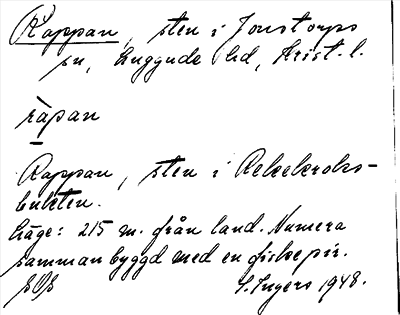 Rappan, sten i Jonstorps
sn, Luggude hd, Krist. l.
ràpan
Rappan, sten i Rekekroks-
bukten.
Läge: 215 m. från land. Numera
samman byggd med en fiskepir.
I. Ingers 1948.